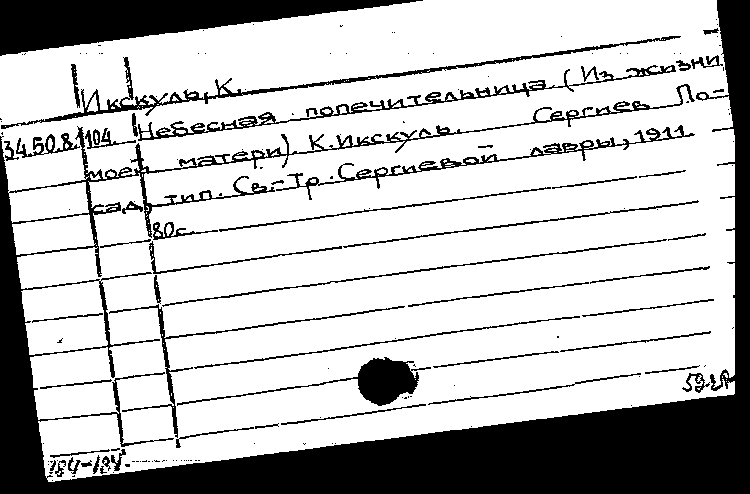 Икскуль, К.
34.50.8. 104 Небесная попечительница. (Из жизни
моей матери). К. Икскуль. Сергиев По-
сад, тип. Св.-Тр. Сергиевой лавры, 1911.
80 с.
184-184.